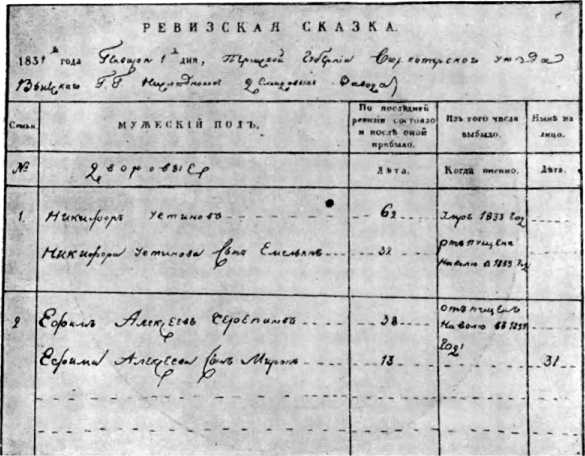 РЕВИЗСКАЯ СКАЗКА.
1851 года Генваря 1 дня, Пермской Губерніи Соликамскаго уезда
Г.Г. Завода
Семьи.
МУЖЕСКІЙ ПОЛЪ.
По последней
ревизіи состояло
и после оной
прибыло.
Изъ того числа
выбыло.
Ныне на
лицо.
№
Дворовые
Лѣта.
Когда именно.
Лѣта.
1. Никифоръ Устиновъ 62 Умре 1833 год
Никифора Устинова Сынъ Емельянъ 32 отъпущенъ
на волю в 1839
2 Ефимъ Алексеевъ 38 отъпущенъ
на волю въ
году
Ефима Алексеева Сынъ Миронъ 13 31